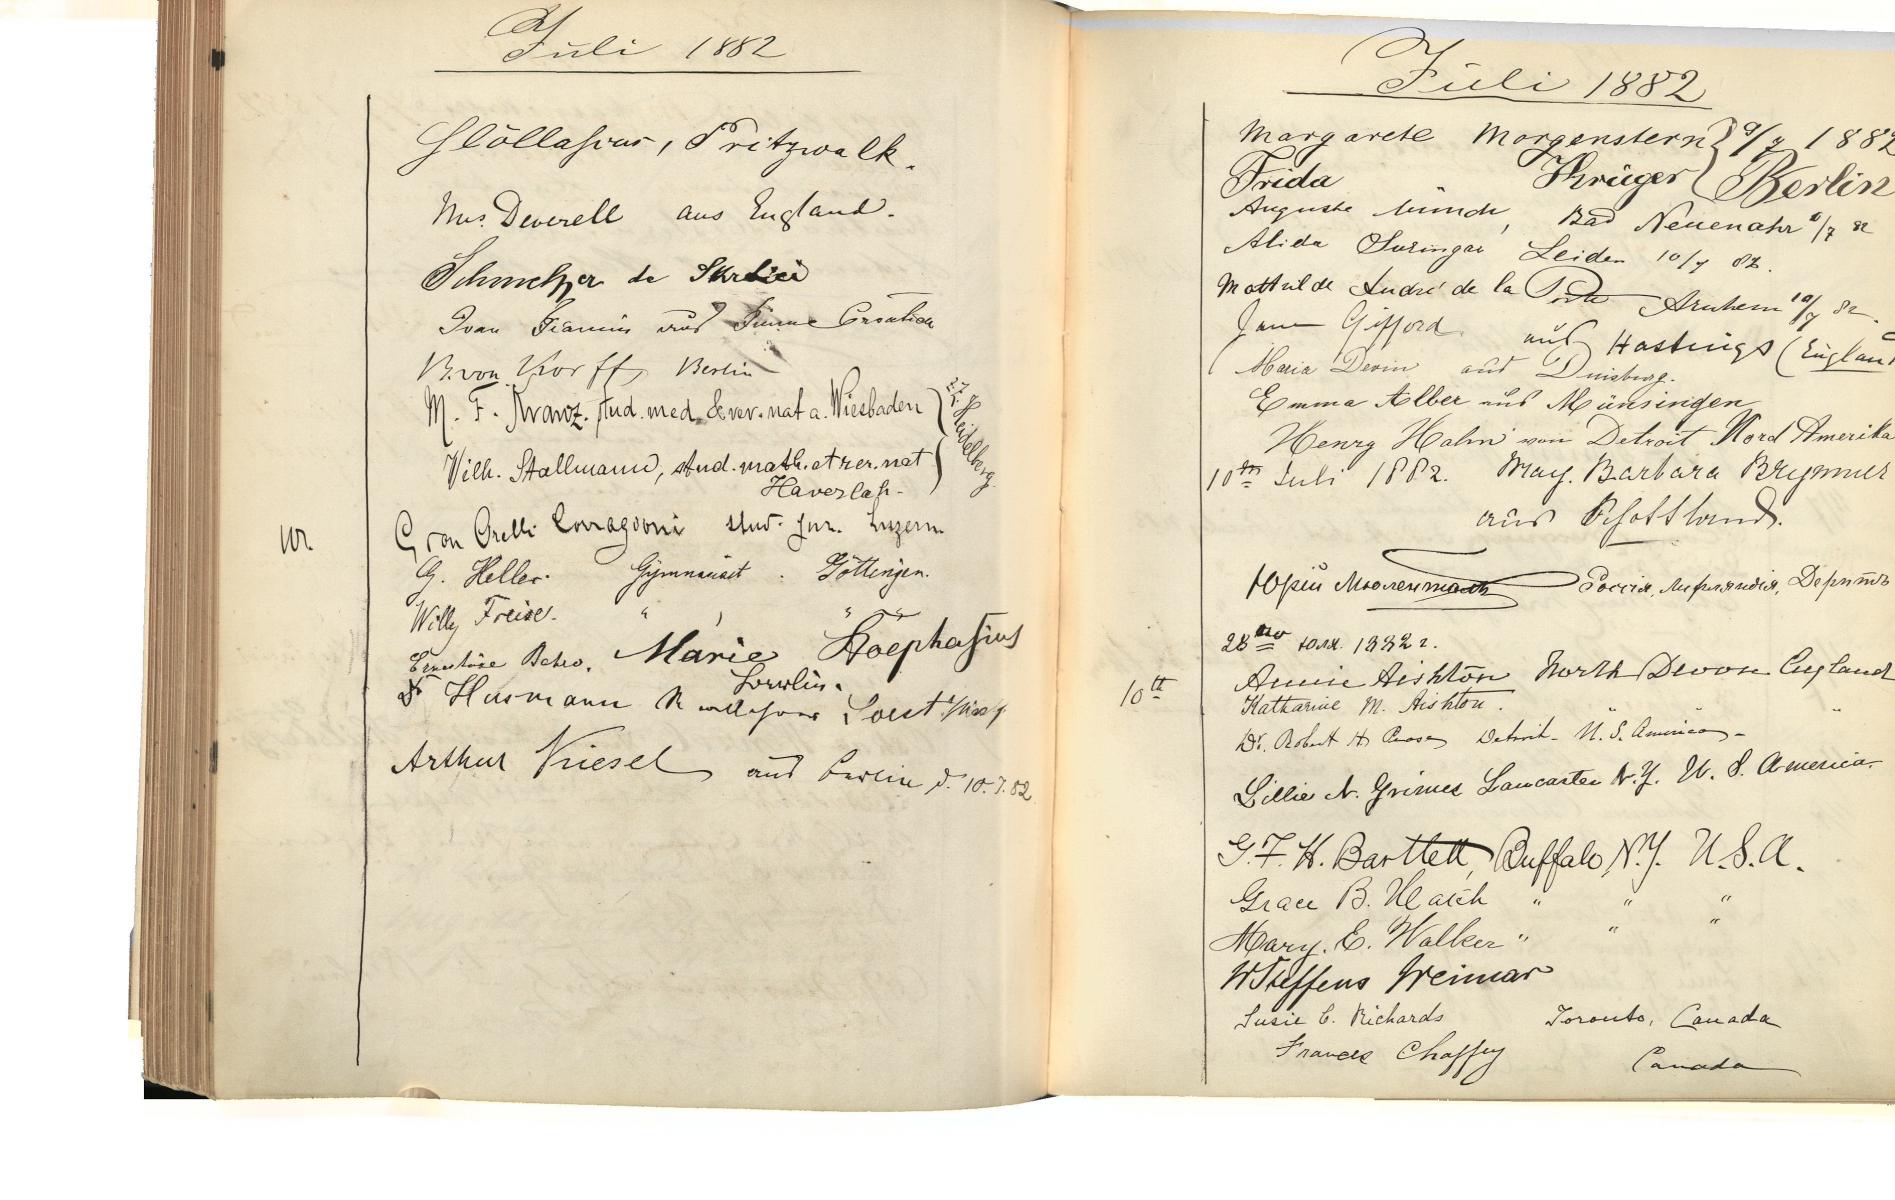 Juli 1882
Pritzwalk.
Mrs. Deverell aus England.
Schmelzer de
Ivan aus Fiume Croatien
B. von Korff Berlin
M. F. Kranz. stud. med. & rer. nat a. Wiesbaden
Wilh. Stallmann, stud. math. et rer. nat
Haverlah.
Heidelberg.
10.
G. von Orelli Corragioni stud. jur. Luzern.
G. Heller. Gymnasiast. Göttingen.
Willy Freise. " " "
Marie Hoephasius
Berlin.
Dr Husmann Soest
Arthur Kiesel aus Berlin d. 10.7.82
Juli 1882
Margarete Morgenstern } 9/7 1882
Frida Krüger } Berlin
Auguste Münch, Bad Neuenahr /7 82
Alida Suringar Leiden 10/7 82.
Mathilde André de la Porte Arnhem 10/7 82.
Jane Gifford aus Hastings (England
Maria Devin aus Duisburg.
Emma Alber aus Münsingen
Henry Hahn von Detroit Nord Amerika
10ten Juli 1882. May. Barbara Brymner
aus Schottland.
Юрій Мюленталь Россія, Лифляндія, Дерптъ
28го юля 1882 г.
Annie Aishton North Devon England
10th
Katharine M. Aishton. " "
Dr. Robert H Detroit- U. S. America-
Lillie N. Grimes Lancaster N.Y. U. S. America.
G. F. H. Bartlett, Buffalo, N.Y. U.S.A.
Grace B. Hatch " " "
Mary. E. Walker " " "
W Steffens Weimar
Susie C. Richards Toronto, Canada
Frances Chaffey Canada